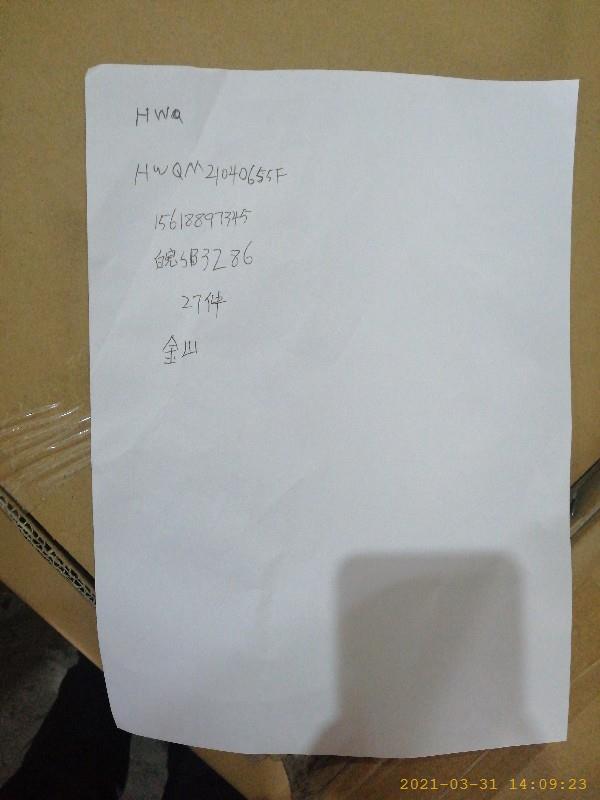 HWa
HWQM21040655F
15618897345
皖SB3286
27件
金山
2021-03-31 14:09:23